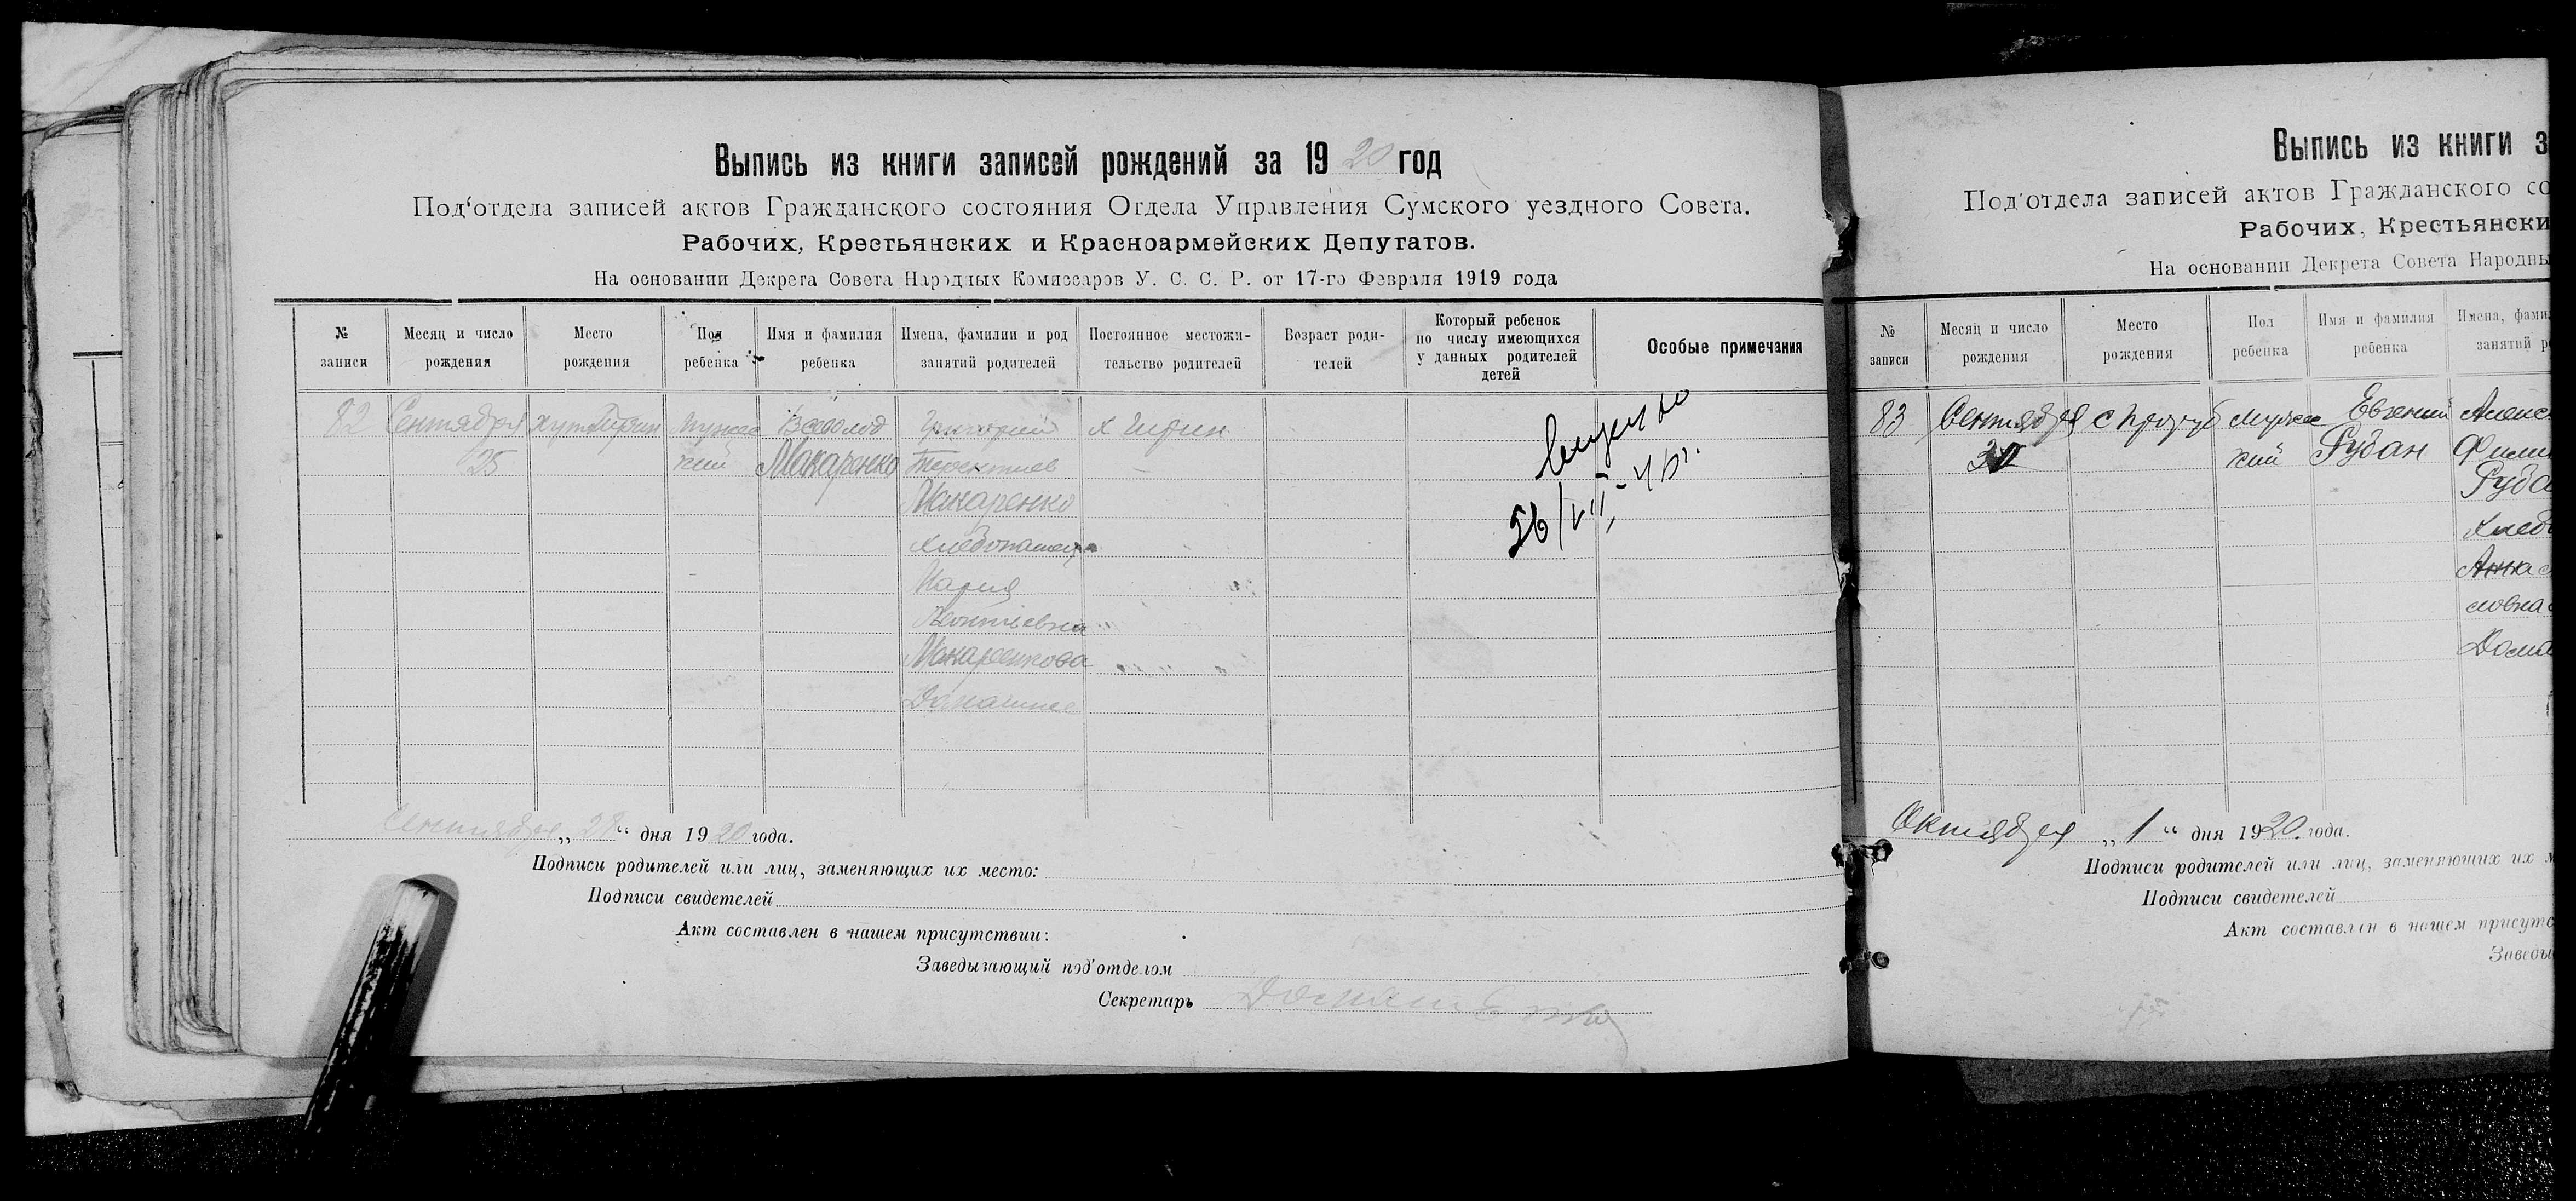 Выпись из книги записей рождений за 1920 год
Под'отдела записей актов Гражданского состояния Отдела Управления Сумского уездного Совета.
Рабочих, Крестьянских и Красноармейских Депутатов.
На основании Декрета Совета Народных Комиссаров У. С. С. Р. от 17-го Февраля 1919 года
№ записи
Месяц и число рождения
Место рождения
Пол ребенка
Имя и фамилия ребенка
Имена, фамилии и род занятий родителей
Постоянное местожительство родителей
Возраст родителей
Который ребенок по числу имеющихся у данных родителей детей
Особые примечания
82
Сентября
25
хут
Мужес
кий
Всеволод
Макаренко
Григорий
Терентиев
Макаренко
Хлебопашец
Мария
Леонтьевна
Макаренкова
Домашнее
х
26/VII-
Сентября „28“ дня 1920 года.
Подписи родителей или лиц, заменяющих их место:
Подписи свидетелей
Акт составлен в нашем присутствии:
Заведывающий под'отделом
Секретарь
Выпись из книги з
Под'отдела записей актов Гражданского со
Рабочих, Крестьянски
На основании Декрета Совета Народны
№ записи
Месяц и число рождения
Место рождения
Пол ребенка
Имя и фамилия ребенка
Имена, фами
занятий р
83
Сентября
с
Мужес
кий
Евгений
Рубан
Алекс
Фили
Рубо
Хлеб
Анна
Дома
Октября „1“ дня 1920 года.
Подписи родителей или лиц, заменяющих их м
Подписи свидетелей
Акт составлен в нашем присутс
Заведы